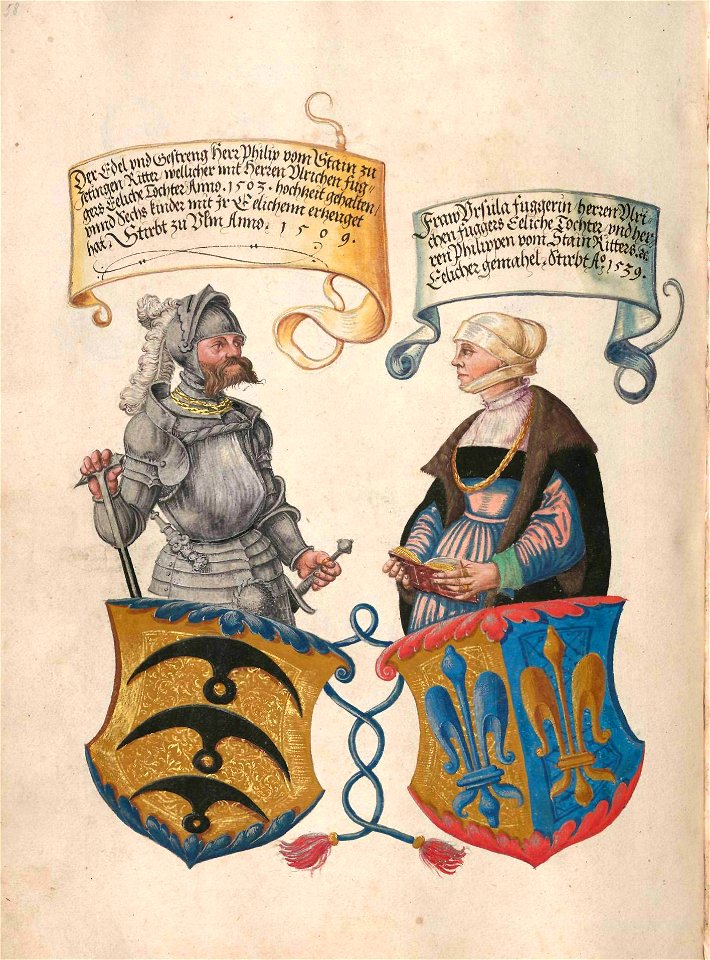 58
Der Edel vnd Gestreng Herr Philip vom Stain zu
Jetingen Ritter, wellicher mit Herren Vlrichen fug=
gers Eeliche Tochter Anno . 1503 . hochkeit gehalten /
vnnd Sechs kinder mit jr Eelichenn erzeuget
hat, Stirbt zu Vlm Anno . 1509.
Fraw Vrsula fuggerin / herren Vlri=
chen fuggers Eeliche Tochter, vnd her=
ren Philippen vom Stain Ritters. &c
Eelicher gemahel, Stirbt Aº. 1539.